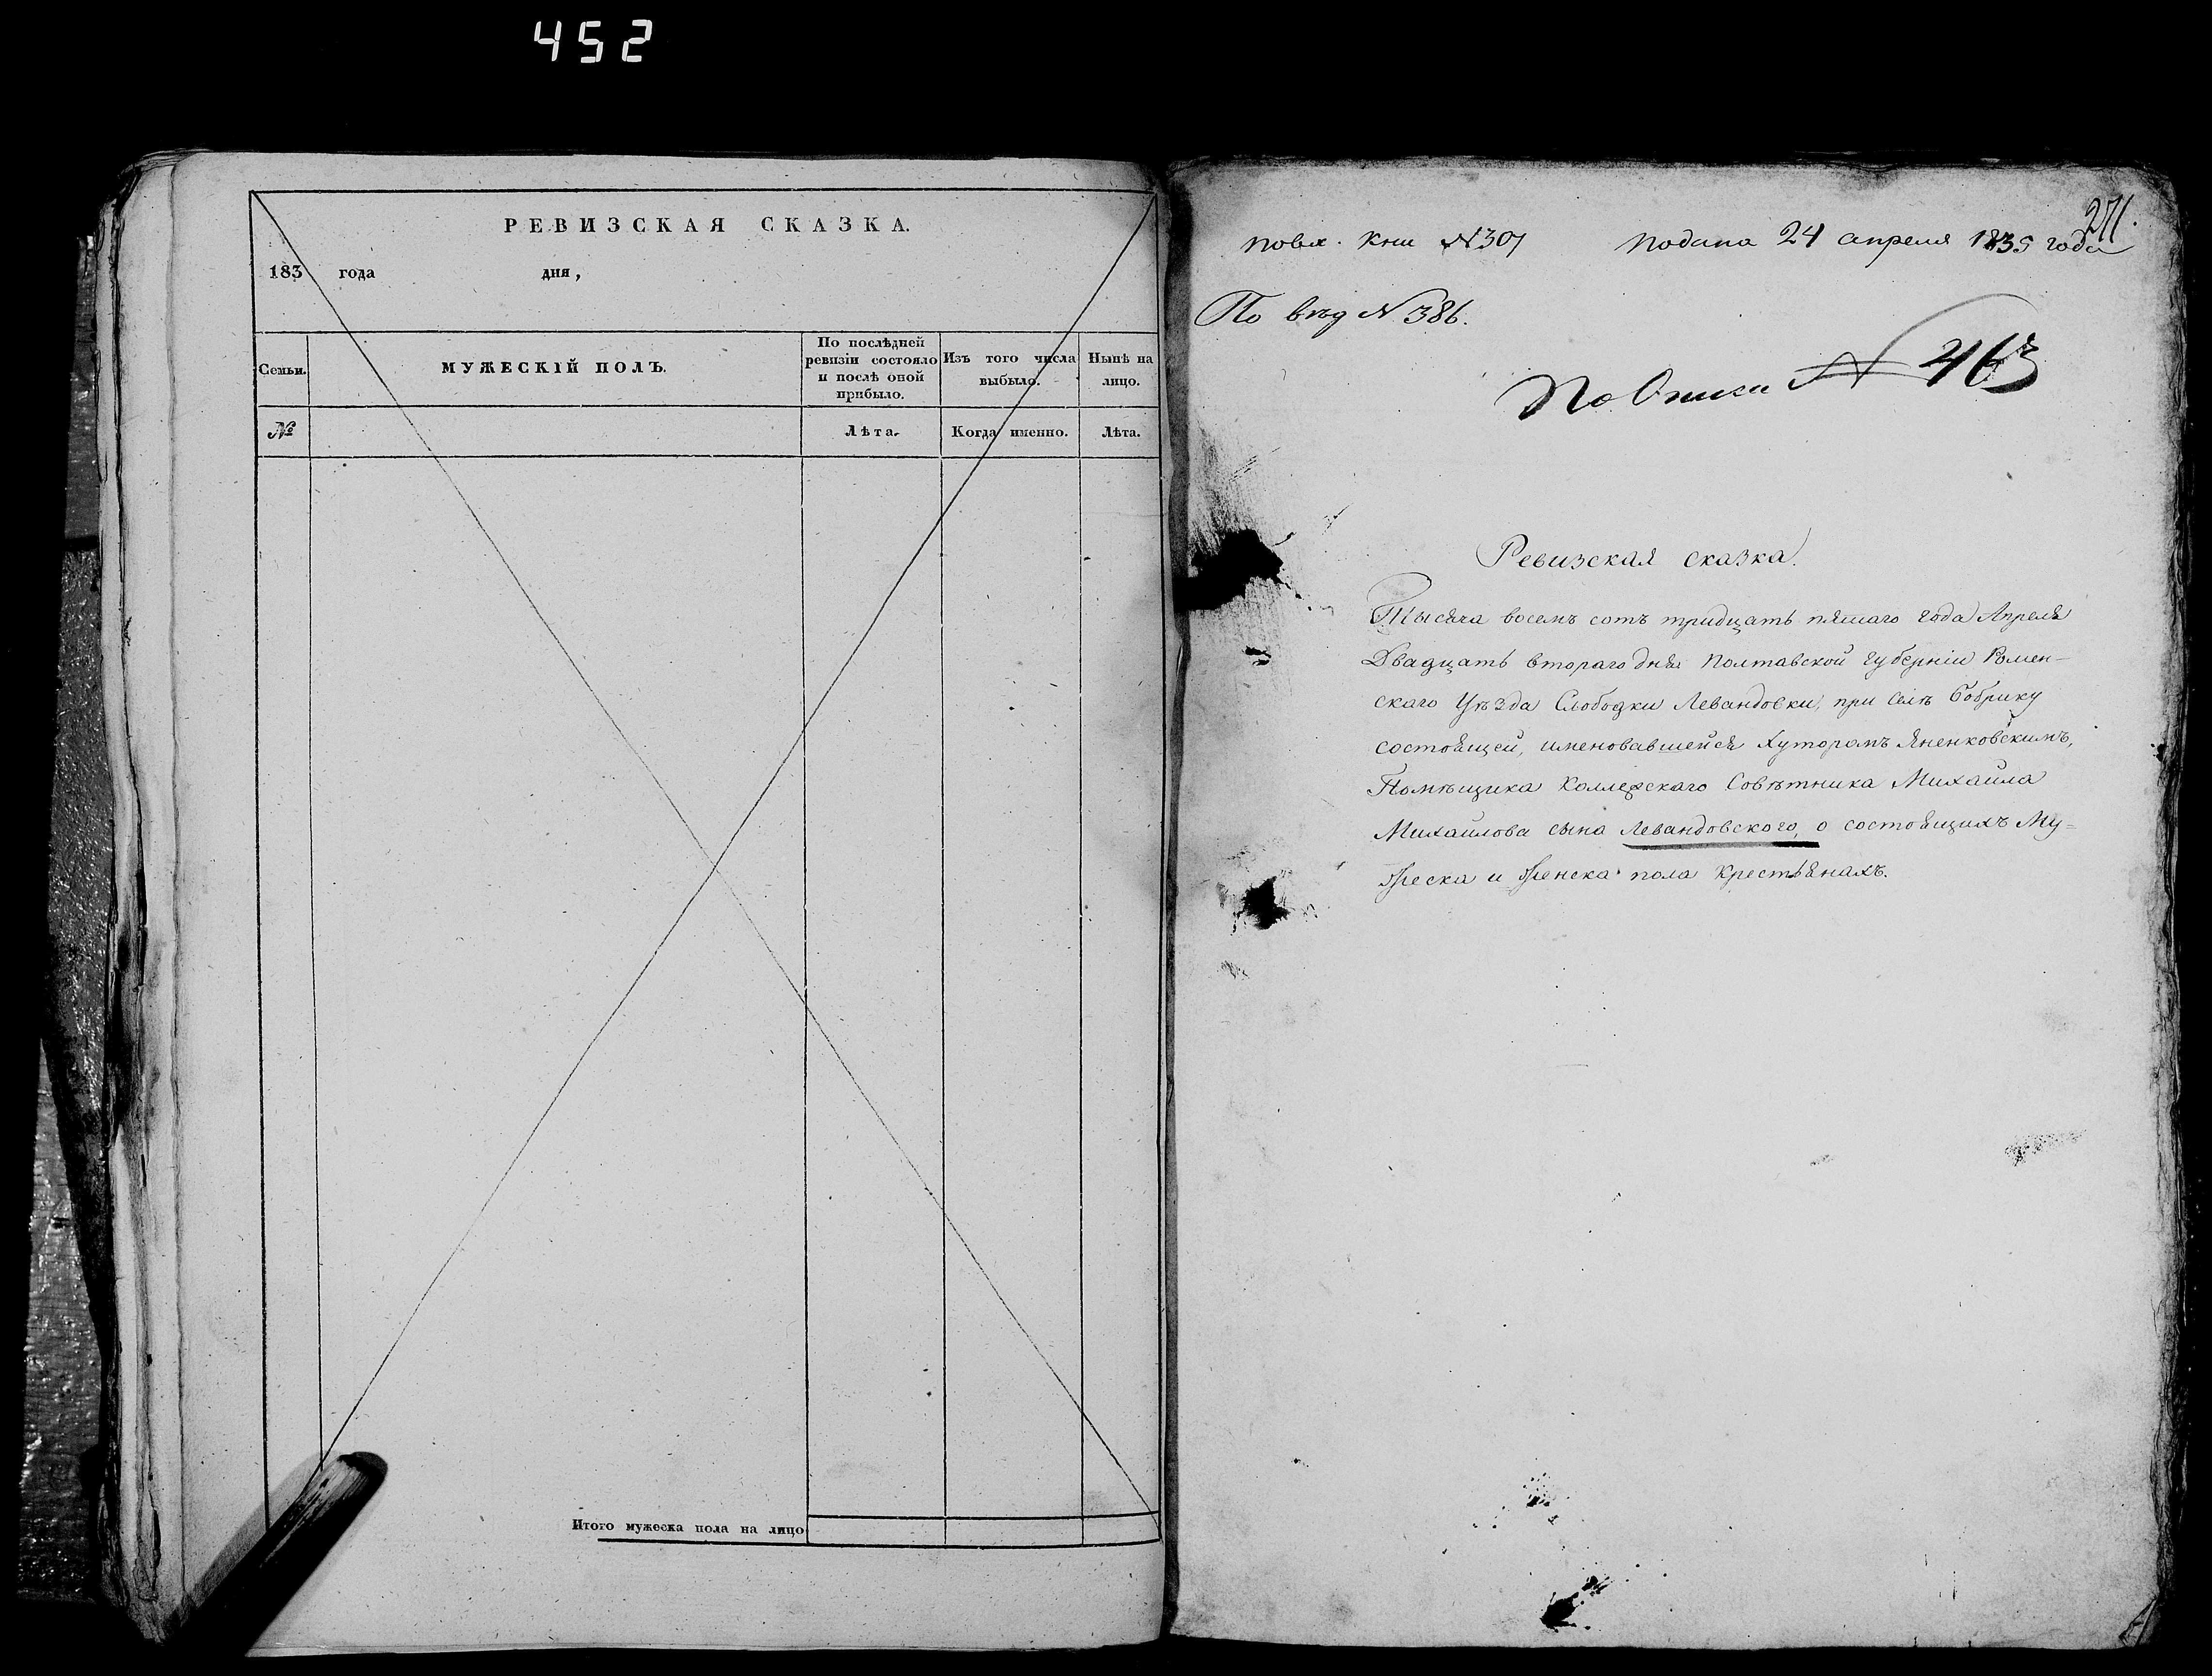 452
РЕВИЗСКАЯ СКАЗКА.
183 года дня,
Семьи.
МУЖЕСКІЙ ПОЛЪ.
По послѣдней ревизіи состояло и послѣ оной прибыло.
Изъ того числа выбыло.
Нынѣ на лицо.
№
Лѣта.
Когда именно.
Лѣта.
Итого мужеска пола на лицо
271.
По вх. Кни №307 Подана 24 апреля 1835 года
По вѣд №386.
По Описи № 463
Ревизская сказка.
Тысяча восемъ сотъ тридцать пятаго года Апреля
Двадцать втораго дня Полтавской губерніи Ромен-
скаго Уѣзда Слободки Левандовки, при селѣ Бобрику
состоящей, именовавшейся Хуторомъ Яненковскимъ,
Помѣщика Коллежскаго Совѣтника Михаила
Михайлова сына Левандовского, о состоящихъ Му=
жеска и Женска пола крестьянахъ.